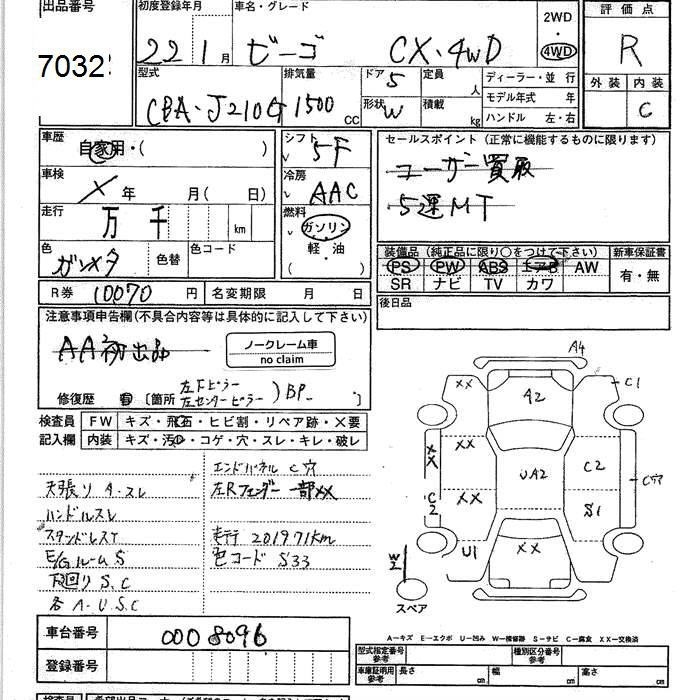 出品番号
7032
初度登録年月
22 1月
車名・グレード
ビーゴ CX・4WD
2WD
・
4WD
評価点
R
型式
CBA-J210G
排気量
1500 CC
ドア
5
形状
W
定員
人
積載
kg
ディーラー・並 行
モデル年式 年
ハンドル 左・右
外装 内装
C
車歴
自家用・( )
シフト
5F
セールスポイント (正常に機能するものに限ります)
ユーザー買取
5速MT
車検
年 月( 日)
冷房
AAC
走行
万 千 km
燃料
ガソリン
軽・油
( )
色
ガンメタ
色替
色コード
装備品 (純正品に限り○をつけて下さい)
PS PW ABS エアB AW
SR ナビ TV カワ
新車保証書
有・無
R券 10070 円
名変期限 月 日
後日品
注意事項申告欄(不具合内容等は具体的に記入して下さい)
AA初出品
ノークレーム車
no claim
修復歴 有 [箇所 左下ピラー
左センターピラー )BP ]
検査員
記入欄
FW キズ・飛石・ヒビ割・リペア跡・×要
内装 キズ・汚れ・コゲ・穴・スレ・キレ・破レ
エンドパネル C穴
天張り A・スレ
左Rフェンダー 一部XX
ハンドルスレ
スタンドレスT
走行 201971km
E/GルームS
色コード S33
下回り S.C
各 A・U.S.C
A4
XX
A2
C1
XX
XX
UA2
C2
C穴
C2
XX
S1
U1
XX
W2
スペア
車台番号 0008096
登録番号
A―キズ E―エクボ U―凹み W―補修跡 S―サビ C―腐食 XX―交換済
型式指定番号
参考
種別区分番号
参考
車庫証明用
参考
長さ cm
幅 cm
高さ cm